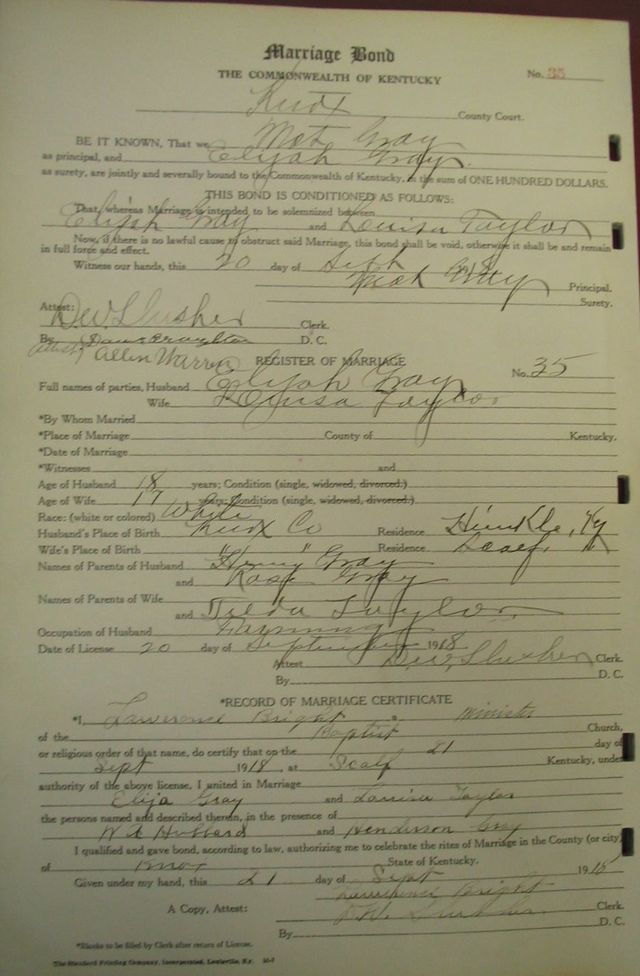 Marriage Bond
THE COMMONWEALTH OF KENTUCKY
No. 35
Knox County Court.
BE IT KNOWN, That we Mat Gray
as principal, and Elijah Gray
as surety, are jointly and severally bound to the Commonwealth of Kentucky, in the sum of ONE HUNDRED DOLLARS.
THIS BOND IS CONDITIONED AS FOLLOWS:
That, whereas Marriage is intended to be solemnized between
Elijah Gray and Louisa Taylor
Now, if there is no lawful cause to obstruct said Marriage, this bond shall be void, otherwise it shall be and remain
in full force and effect.
Witness our hands, this 20 day of Sept 1918
Mat Gray Principal.
Surety.
Attest:
Dew. Slusher Clerk.
By D. C.
Attest Allen Warren
REGISTER OF MARRIAGE
No. 35
Full names of parties, Husband Elijah Gray
Wife Louisa Taylor
*By Whom Married
*Place of Marriage County of Kentucky.
*Date of Marriage
*Witnesses and
Age of Husband 18 years; Condition (single, widowed, divorced.)
Age of Wife 17 years; Condition (single, widowed, divorced.)
Race: (white or colored) White
Husband's Place of Birth Knox Co Residence Hinkle, Ky
Wife's Place of Birth " " Residence Scalf, "
Names of Parents of Husband Henry Gray
and Rose Gray
Names of Parents of Wife
and Tilda Taylor
Occupation of Husband Farming
Date of License 20 day of September 1918
Attest Dew. Slusher Clerk.
By D. C.
*RECORD OF MARRIAGE CERTIFICATE
*I, Lawrence Bright a Minister
of the Baptist Church,
or religious order of that name, do certify that on the 21 day of
Sept 1918, at Scalf Kentucky, under
authority of the above license, I united in Marriage
Elija Gray and Louisa Taylor
the persons named and described therein, in the presence of
W A Hubbard and Henderson Gray
I qualified and gave bond, according to law, authorizing me to celebrate the rites of Marriage in the County (or city)
of Knox State of Kentucky.
Given under my hand, this 21 day of Sept 1918
Lawrence Bright
A Copy, Attest: Slusher Clerk.
By D. C.
*Blanks to be filed by Clerk after return of License.
The Standard Printing Company, Incorporated, Louisville, Ky.